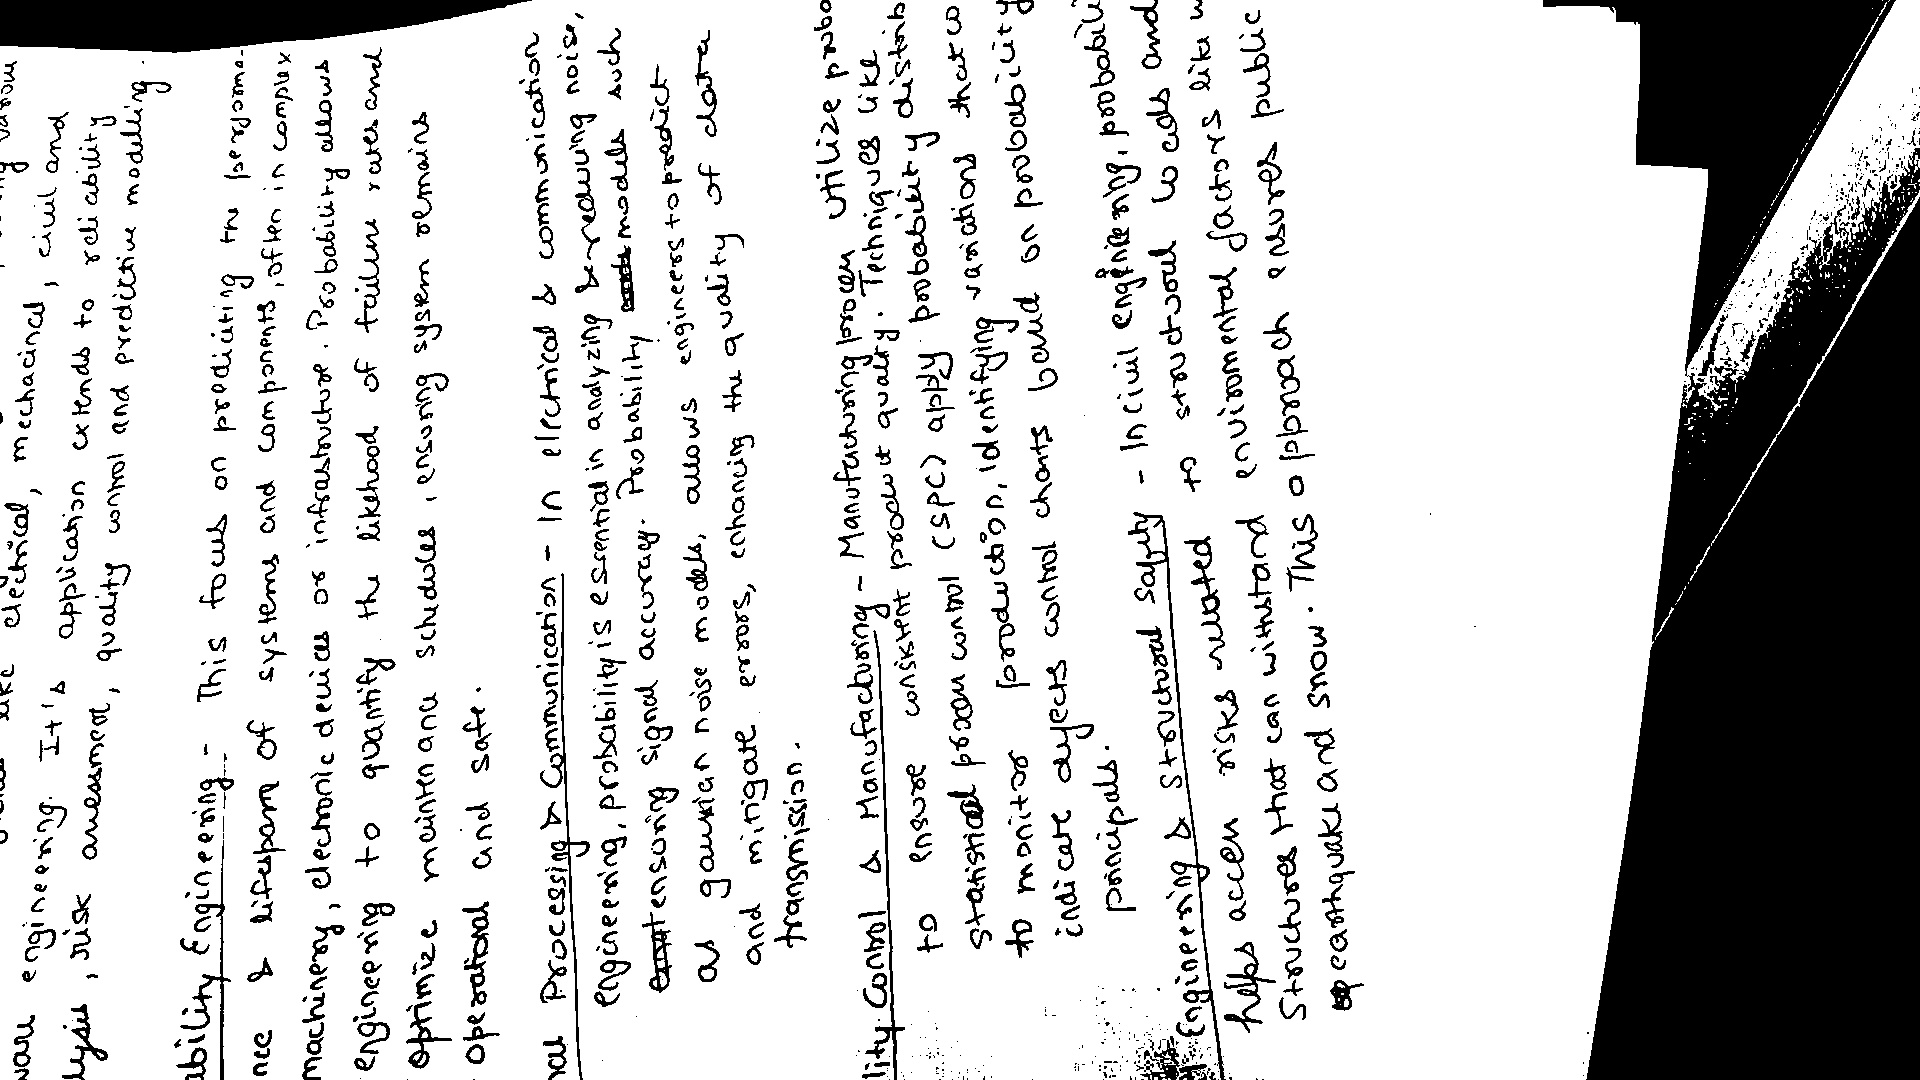 like electrical, mechacinal, civil and
ware engineering. It's application extends to reliability
lysis, risk assessment, quality control and predictive modeling.
ability Engineering - This focus on predicting the perfoma-
nce & lifespam of systems and components, often in complex
machinery, electronic devices or infrastructure. Probability allows
engineering to quantify the likehood of failure rates and
optimize maintenance schedules, ensuring system remains
operational and safe.
nal Processing & Communication - In electrical & communication
engineering, probability is essential in analyzing & reducing noise,
ensuring signal accuracy. Probability models such
as gaussian noise models, allows engineers to predict
and mitigate errors, enhancing the quality of data
transmission.
lity Control & Manufacturing - Manufacturing process utilize proba
to ensure consistent product quality. Techniques like
statistical process control (SPC) apply probability distrib
to monitor production, identifying variations that co
indicate defects control charts based on probability
principals.
Engineering & Structural Safety - In civil engineering, probabili
helps assess risks related to structural loads and
Structures that can withstand environmental factors like w
earthquake and snow. This approach ensures public